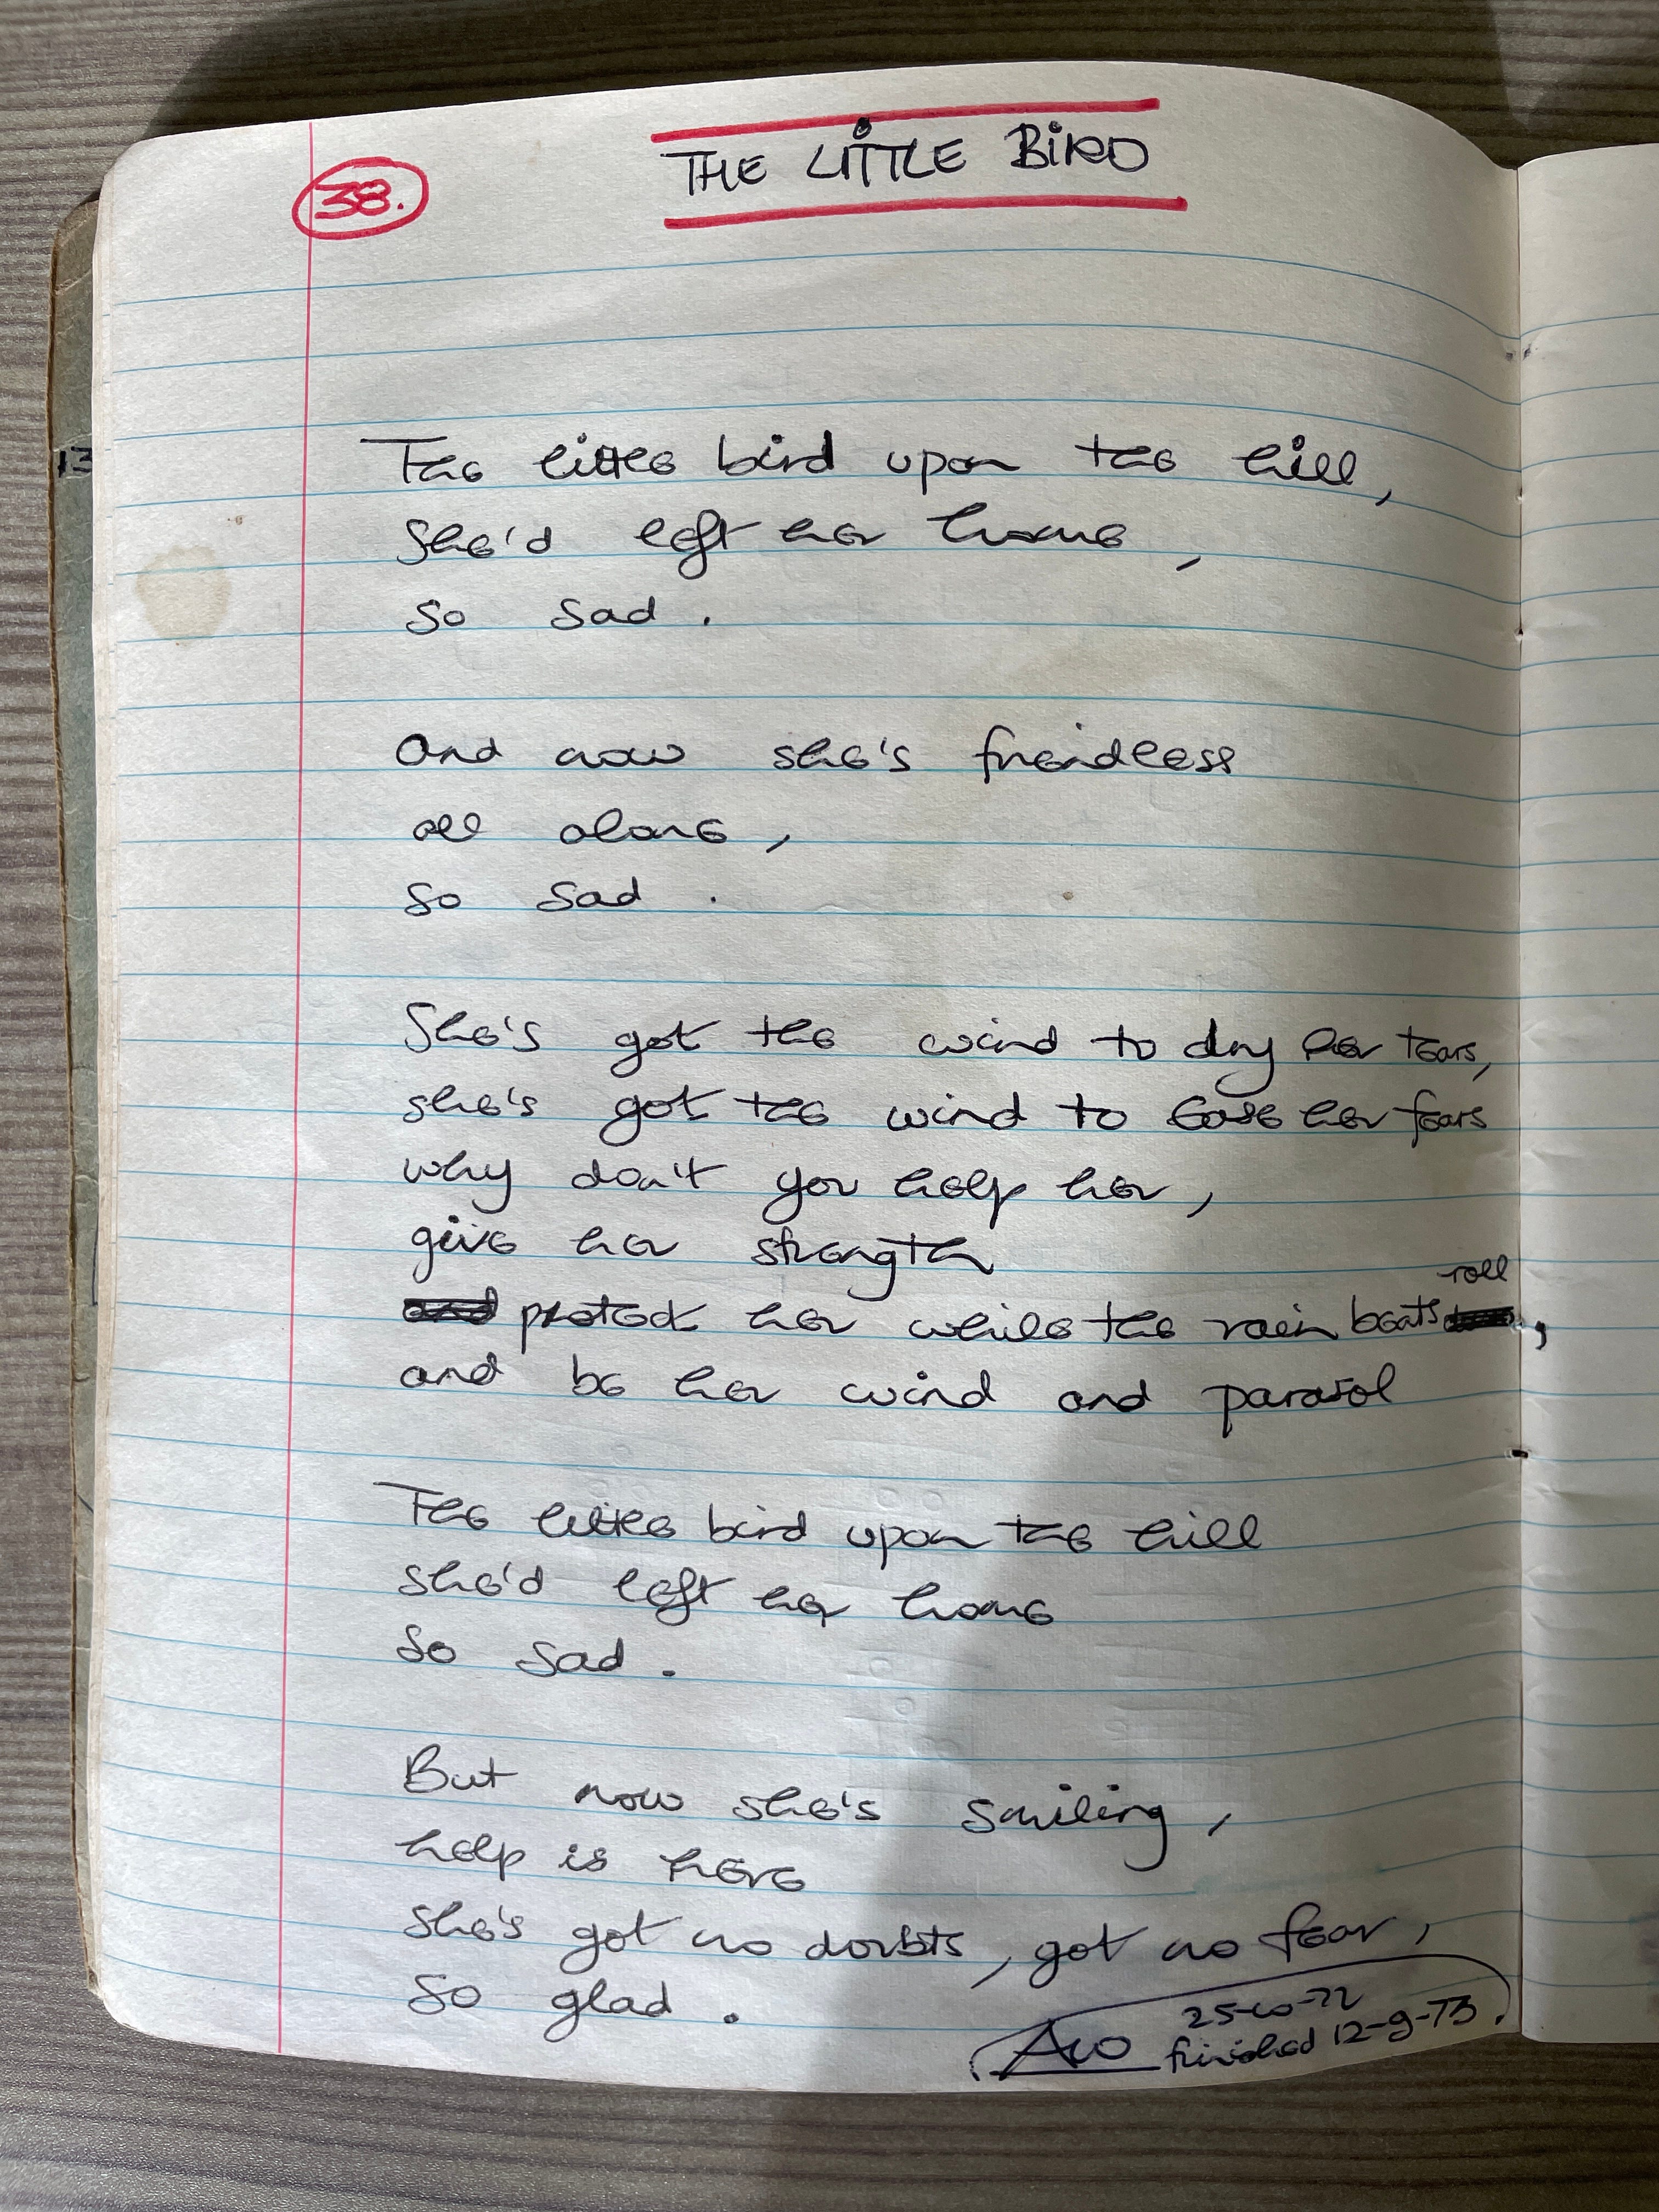 38.
THE LITTLE BIRD
13
The little bird upon the hill,
She'd left her home,
so sad.
And now she's freindless
all alone,
so sad.
She's got the wind to dry her tears,
she's got the wind to ease her fears
why don't you help her,
give her strength
roll
protect her while the rain beats,
and be her wind and parasol
The little bird upon the hill
she'd left her home
so sad.
But now she's smiling,
help is here
She's got no doubts, got no fear,
so glad.
25-10-72
finished 12-9-73.